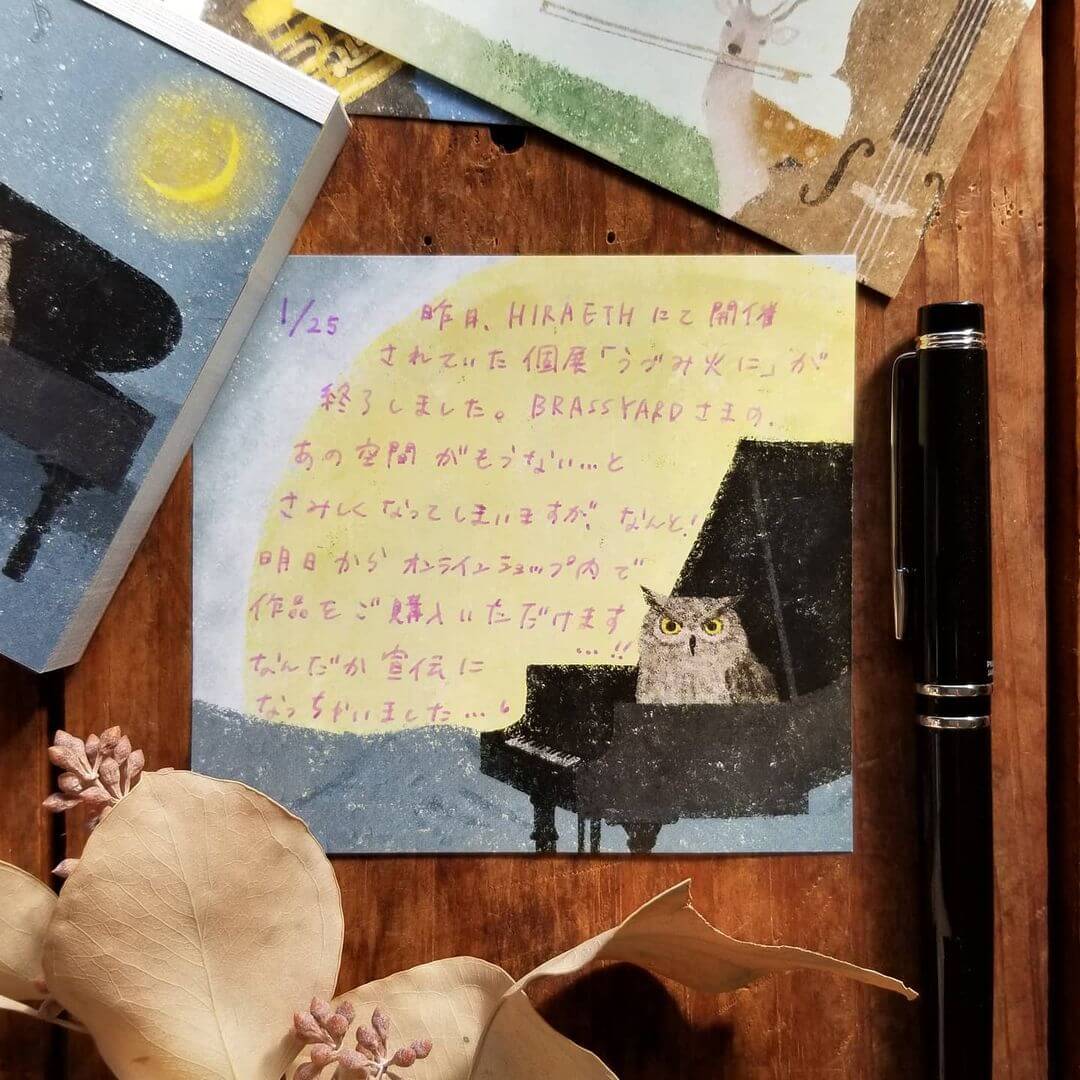 1/25 昨日、HIRAETHにて開催
されていた個展「うづみ火に」が
終了しました。BRASSYARDさまの、
あの空間がもうない…と
さみしくなってしまいますが、なんと!
明日からオンラインショップ内で
作品をご購入いただけます
…!!
なんだか宣伝に
なっちゃいました…。